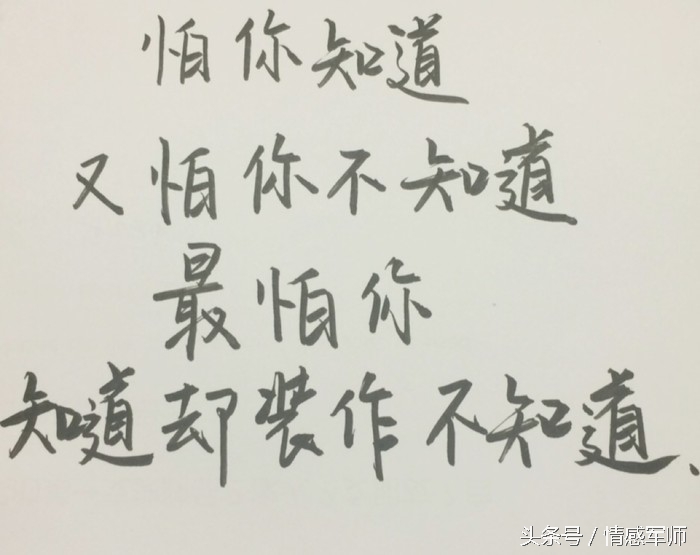 怕你知道
又怕你不知道
最怕你
知道却装作不知道、
头条号 / 情感军师